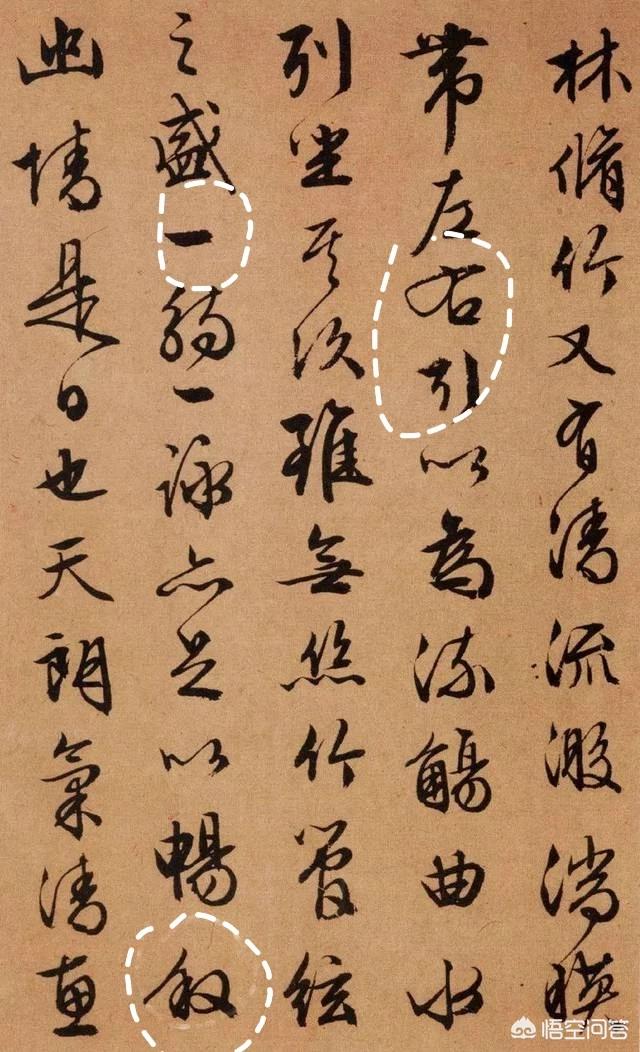 林脩竹又有清流激湍暎
帶左右引以為流觴曲水
列坐其次雖無絲竹管絃
之盛一觴一詠亦足以暢叙
幽情是日也天朗氣清惠
悟空问答